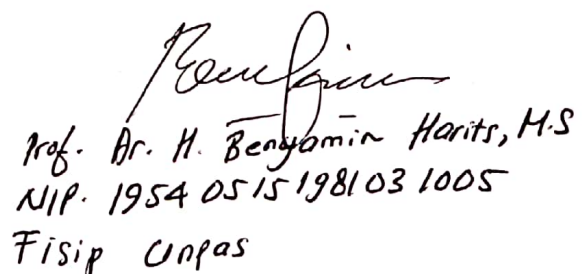 Prof. Dr. H. Benyamin Harits, M.S
NIP. 1954 0515 198103 1005
Fisip Unpas